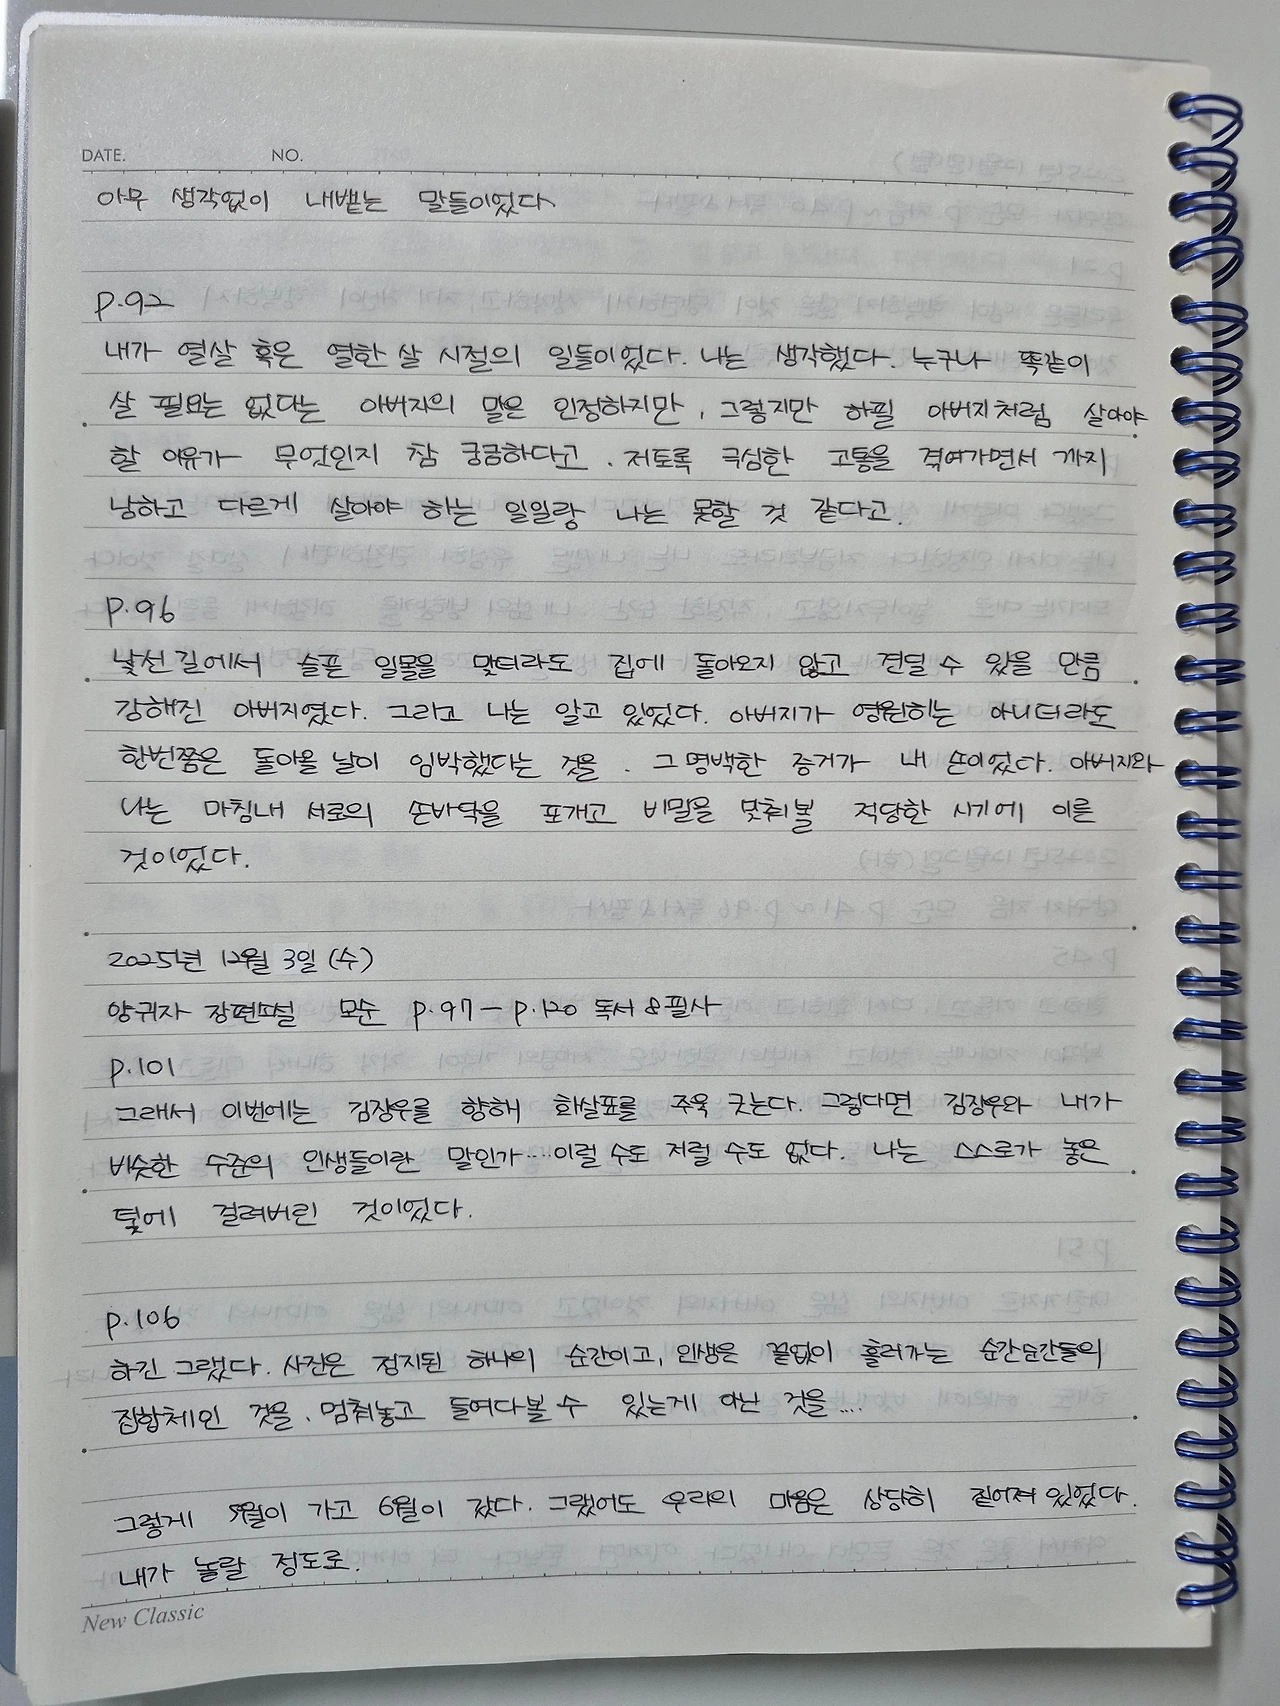 DATE. NO.
아무 생각없이 내뱉는 말들이었다
p.92
내가 열살 혹은 열한 살 시절의 일들이었다. 나는 생각했다. 누구나 똑같이
살 필요는 없다는 아버지의 말은 인정하지만, 그렇지만 하필 아버지처럼 살아야
할 이유가 무엇인지 참 궁금하다고. 저토록 극심한 고통을 겪어가면서 까지
남하고 다르게 살아야 하는 일일랑 나는 못할 것 같다고.
p.96
낯선 길에서 슬픈 일몰을 맞더라도 집에 돌아오지 않고 견딜 수 있을 만큼
강해진 아버지였다. 그리고 나는 알고 있었다. 아버지가 영원히는 아니더라도
한번쯤은 돌아올 날이 임박했다는 것을. 그 명백한 증거가 내 손이었다. 아버지와
나는 마침내 서로의 손바닥을 포개고 비밀을 맞춰볼 적당한 시기에 이른
것이었다.
2025년 12월 3일 (수)
양귀자 장편소설 모순 p.97 - p.120 독서 & 필사
p.101
그래서 이번에는 김장우를 향해 화살표를 주욱 긋는다. 그렇다면 김장우와 내가
비슷한 수준의 인생들이란 말인가....이럴 수도 저럴 수도 없다. 나는 스스로가 놓은
덫에 걸려버린 것이었다.
p.106
하긴 그랬다. 사진은 정지된 하나의 순간이고, 인생은 끝없이 흘러가는 순간순간들의
집합체인 것을. 멈춰놓고 들여다볼 수 있는게 아닌 것을....
그렇게 5월이 가고 6월이 갔다. 그랬어도 우리의 마음은 상당히 짙어져 있었다.
내가 놀랄 정도로.
New Classic